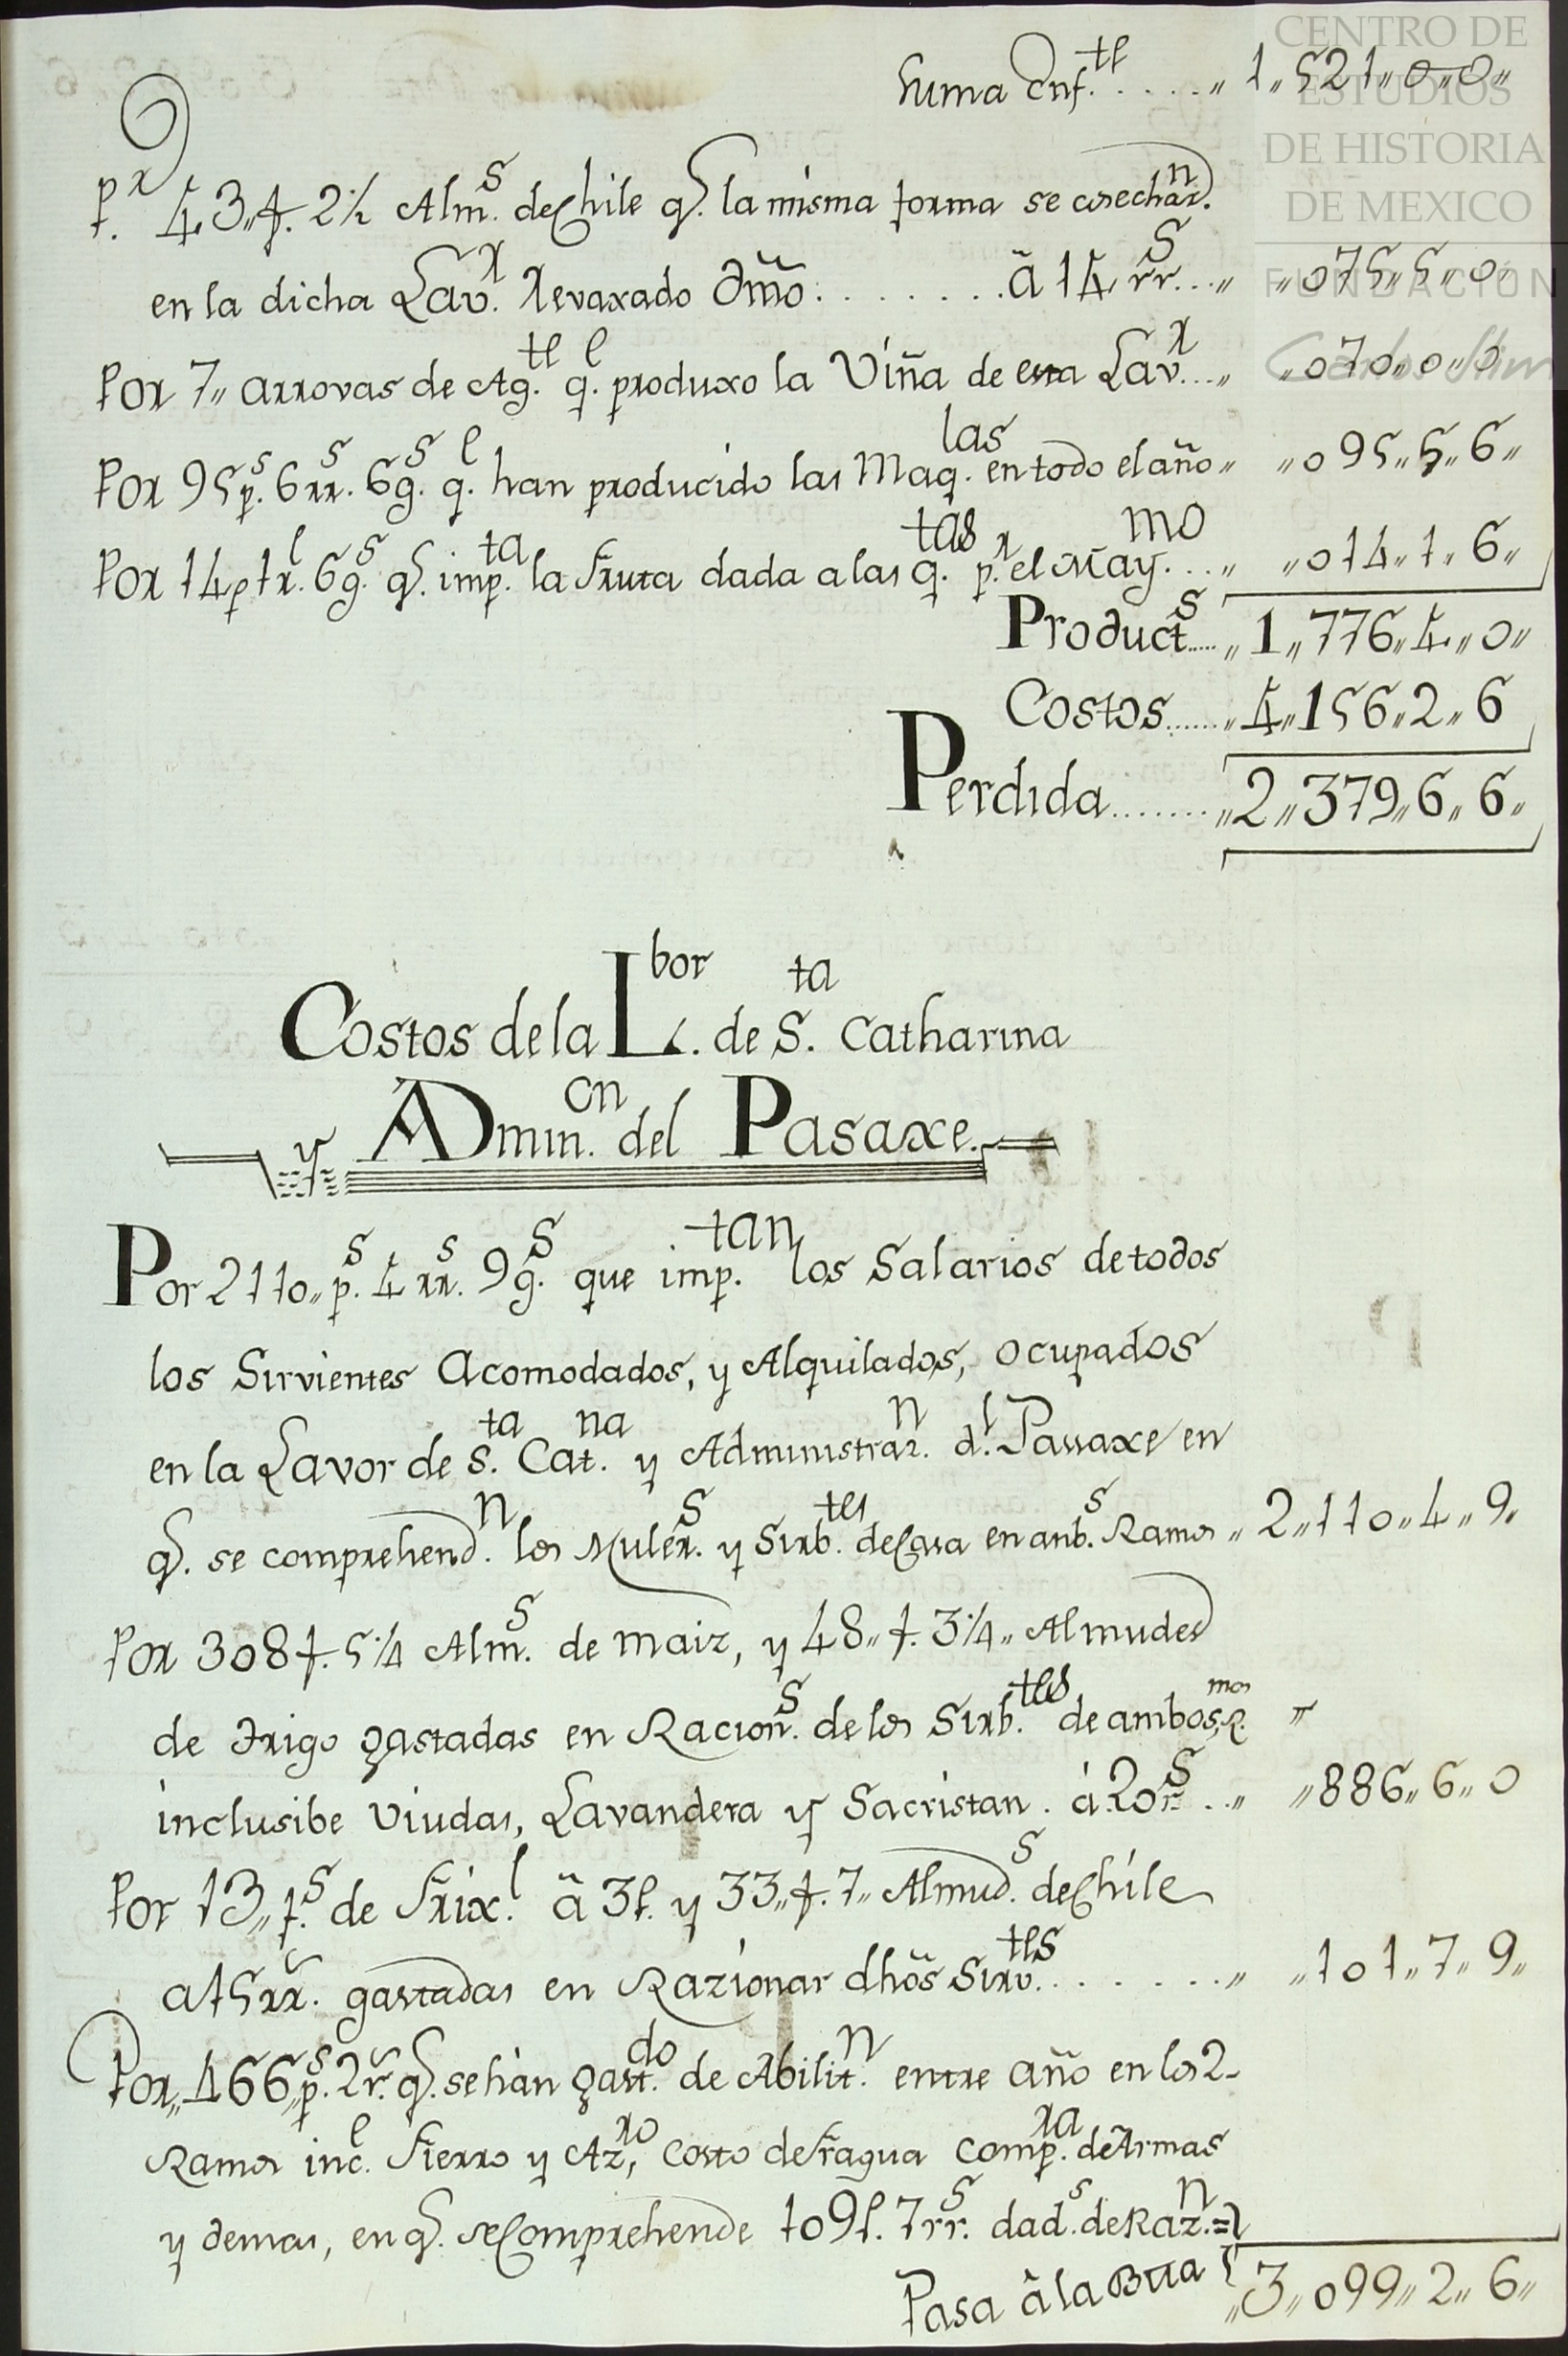 Suma Ant.te ..... „ 1„521„0„0„
p.r 43„f. 2½ Alm.s de Chile q.e la misma forma se cosechar.n
en la dicha Lav.r Revaxado Dmõ. ........ â 14 rr.s ... „ „075„5„0„
Por 7„ arrovas de Ag.te q.e produxo la Viña de esta Lav.r ... „ „070„0„0
Por 95p.s 6rr.s 6g.s q.e han producido las Maq.las en todo el año „ „095„6„6„
Por 14p 1r.l 6g.s q.e imp.ta la Fruta dada a las q.tas p.r el May.mo ... „ „014„1„6„
Product.s .... „ 1„776„4„0„
Costos ...... „ 4„156„2„6
Perdida ....... „2„379„6„6„
Costos de la L.bor de S.ta Catharina
y ADmin.on del Pasaxe.
Por 2110„ p.s 4 rr.s 9g.s que imp.tan los Salarios de todos
los Sirvientes Acomodados, y Alquilados, ocupados
en la Lavor de S.ta Cat.na y Administraz.n d.l Passaxe en
q.e se comprehend.n los Muler.s y Sirb.tes de Casa en anb.s Ramos „ 2„110„4„9„
Por 308 f. 5¼ Alm.s de maiz, y 48„ f. 3¼„ Almudes
de trigo gastadas en Racion.s de los Sirb.tes de ambos R.mos „
inclusibe Viudas, Lavandera y Sacristan. á 20 r.s .. „ „886„6„0
Por 13„ f.s de Frix.l â 3p. y 33„f. 7„ Almud.s de Chile
a 15 rr.s gastadas en Razionar dhõs Sirv.tes ....... „ „101„7„9„
Por„ 166„p.s 2r.s q.e se hàn gast.do de Abilit.n entre año en los 2„
Ramos inc.e Fierro y Az.ro, Costo de Fragua comp.ra de Armas
y demas, en q.e se Comprehende 109p. 7rr.s dad.s de Raz.n =
Pasa â la Bta „3„099„2„6„
CENTRO DE
ESTUDIOS
DE HISTORIA
DE MEXICO
FUNDACIÓN
Carlos Slim